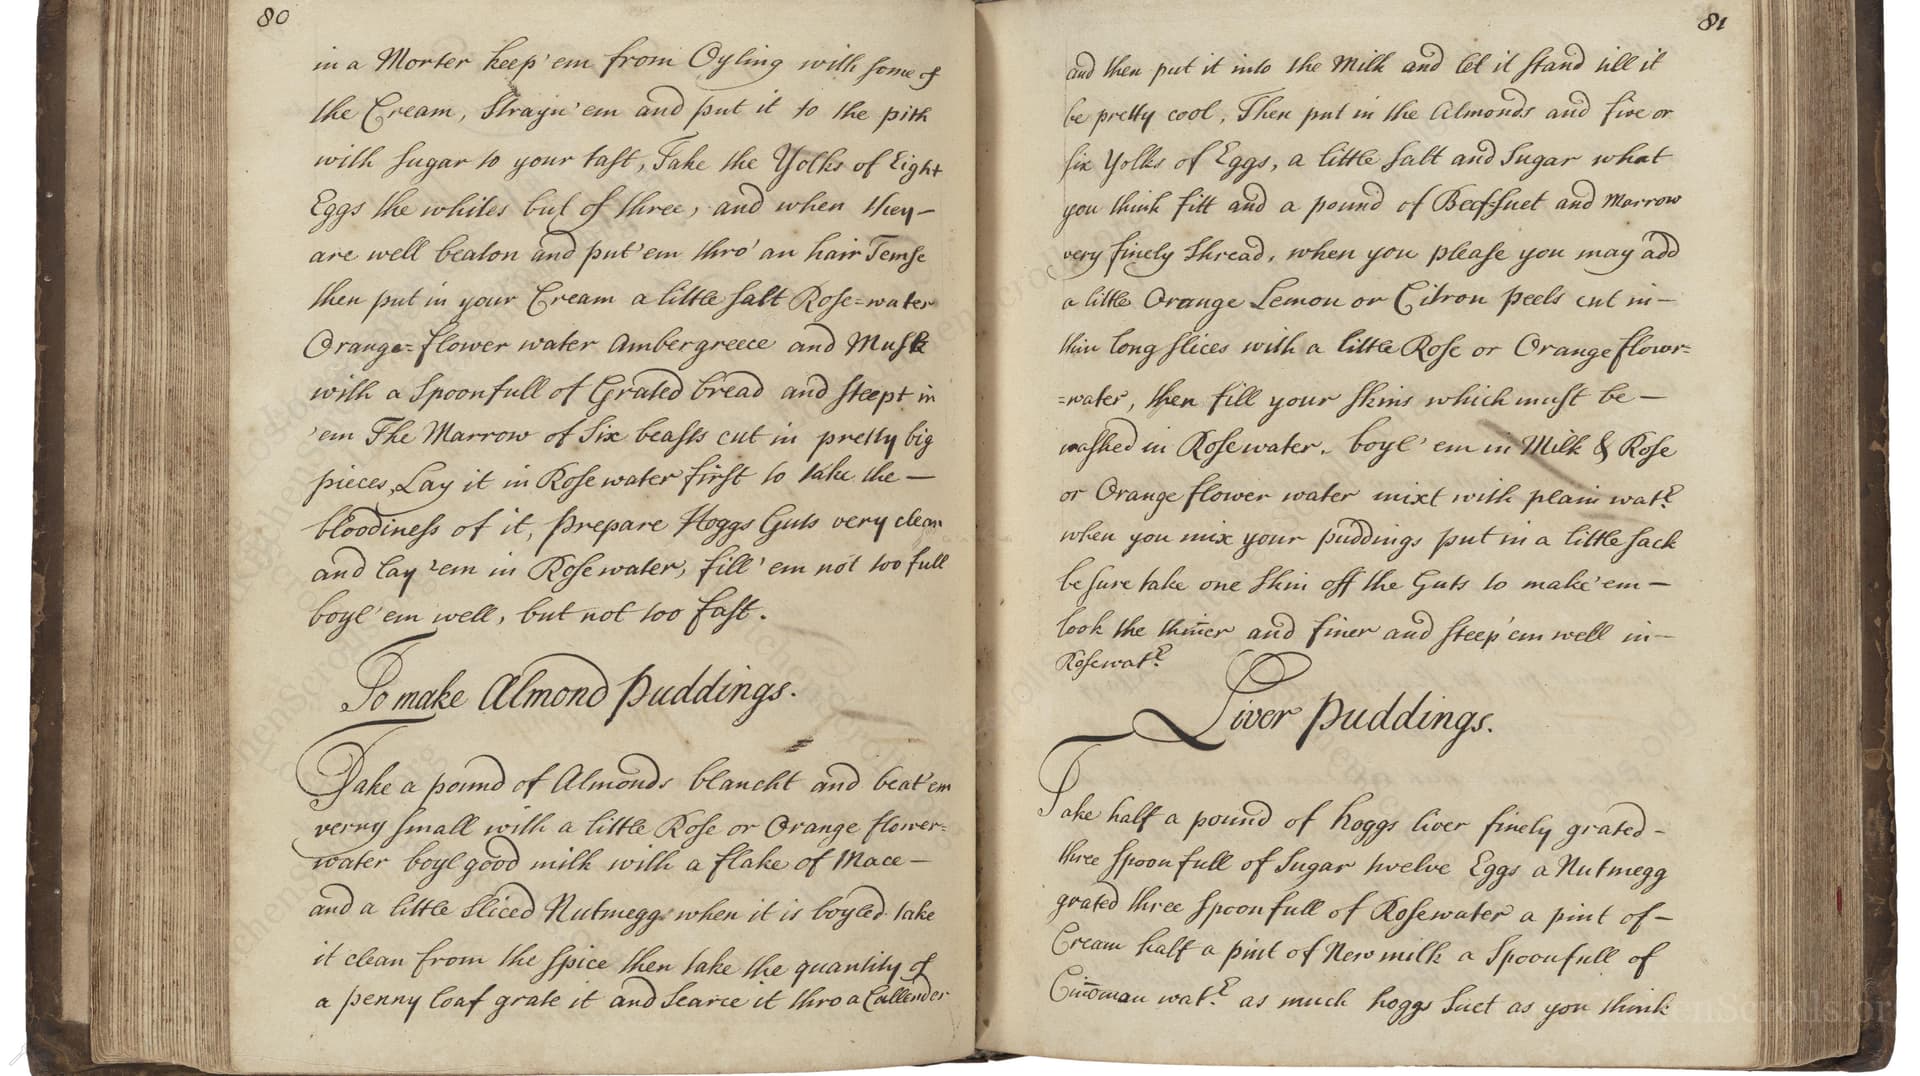 80
in a Morter keep'em from Oyling with some of
the Cream, Strayn'em and put it to the pith
with sugar to your tast, Take the Yolks of Eight
Eggs the whites but of three, and when they—
are well beaton and put'em thro' an hair Temse
then put in your Cream a little salt Rose=water
Orange=flower water Ambergreece and Musk
with a Spoonfull of Grated bread and steept in
'em The Marrow of Six beasts cut in pretty big
pieces, Lay it in Rosewater first to take the—
bloodiness of it, prepare Hoggs Guts very clean
and lay 'em in Rosewater, fill'em not too full
boyl'em well, but not too fast.
To make Almond Puddings.
Take a pound of Almonds blancht and beat'em
verry small with a little Rose or Orange flower=
water boyl good milk with a flake of Mace—
and a little sliced Nutmegg when it is boyled take
it clean from the spice then take the quantity of
a penny loaf grate it and Searce it thro a Cullender
81
and then put it into the Milk and let it stand till it
be pretty cool, Then put in the Almonds and five or
six Yolks of Eggs, a little salt and Sugar what
you think fitt and a pound of Beef=suet and Marrow
very finely Shread, when you please you may add
a little Orange Lemon or Citron peels cut in—
thin long slices with a little Rose or Orange flowr=
=water, then fill your skins which must be—
washed in Rosewater. boyl'em in Milk & Rose
or Orange flower water mixt with plain watr
when you mix your puddings put in a little sack
be sure take one Skin off the Guts to make'em—
look the thiner and finer and steep'em well in—
Rosewatr
Liver Puddings.
Take half a pound of hoggs liver finely grated—
three Spoonfull of Sugar twelve Eggs a Nutmegg
grated three Spoonfull of Rosewater a pint of—
Cream half a pint of New milk a Spoonfull of
Cinoman watr as much hoggs Suet as you think